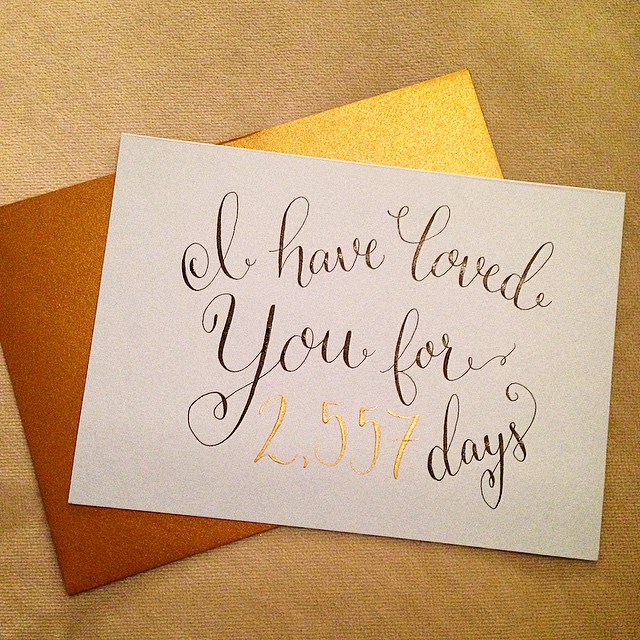 I have loved
You for
2,557 days